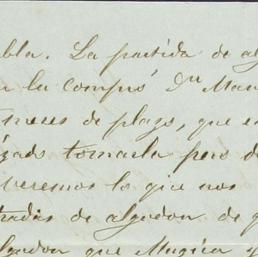 abla. La partida de alg
n la compró Dn Man
meses de plazo, que e
izado tomarla pero d
veremos lo que nos
tradas de algodon de q
lgodon que Mugica y